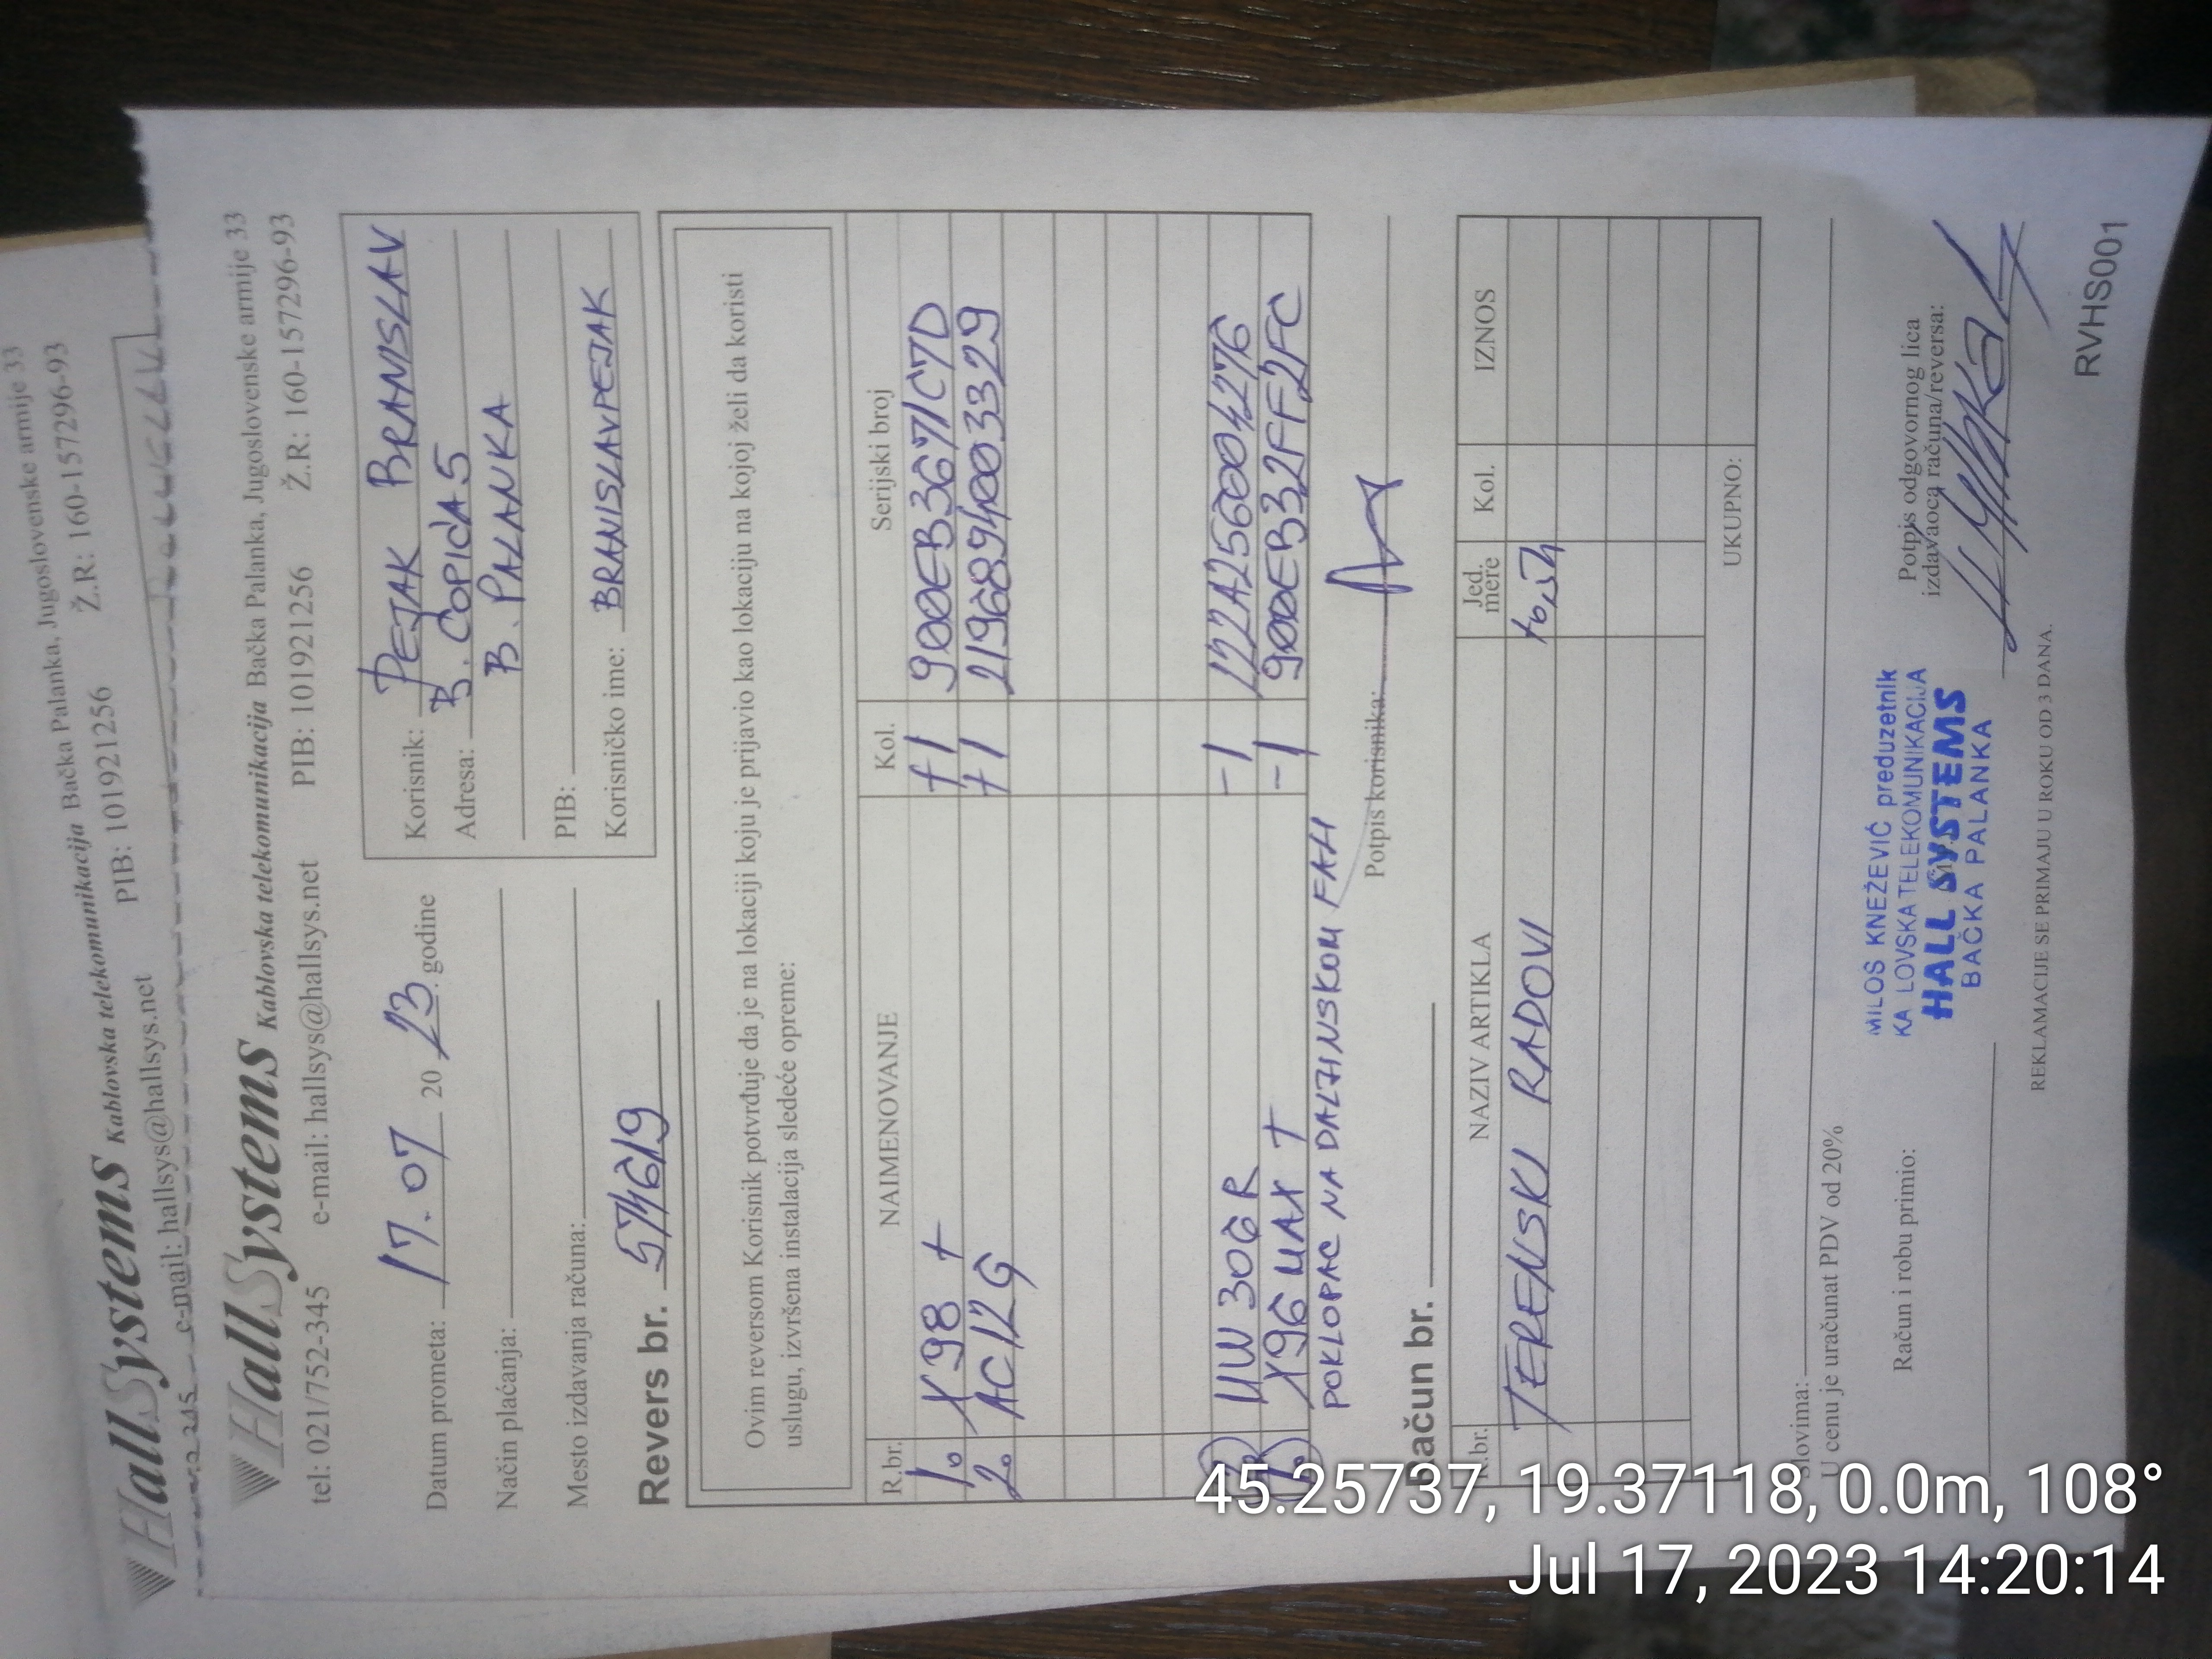 33
Kablovska telekomunikacija Bačka Palanka, Jugoslovenske armije 33
HallSystems
PIB: 101921256 Ž.R: 160-1572​96-93
e-mail: hallsys@hallsys.net
HallSystems Kablovska telekomunikacija Bačka Palanka, Jugoslovenske armije 33
tel: 021/752-345 e-mail: hallsys@hallsys.net PIB: 101921256 Ž.R: 160-157296-93
Datum prometa: 17.07 2023. godine
Način plaćanja:
Mesto izdavanja računa:
Korisnik: PEJAK BRANISLAV
Adresa: B. ĆOPIĆA 5
B. PALANKA
PIB:
Korisničko ime: BRANISLAVPEJAK
Revers br. 574619
Ovim reversom Korisnik potvrđuje da je na lokaciji koju je prijavio kao lokaciju na kojoj želi da koristi
uslugu, izvršena instalacija sledeće opreme:
R.br. NAIMENOVANJE Kol. Serijski broj
1. X98 + +1 900EB3671C7D
2. AC12G +1 2196894003329
MW 306R -1 122A256004276
1. X96 MAX + -1 900EB32FF2FC
POKLOPAC NA DALJINSKOM FALI
Potpis korisnika:
Račun br.
R.br. NAZIV ARTIKLA Jed. mere Kol. IZNOS
TERENSKI RADOVI
UKUPNO:
Slovima:
U cenu je uračunat PDV od 20%
Račun i robu primio:
Potpis odgovornog lica
izdavaoca računa/reversa:
MILOS KNEŽEVIĆ preduzetnik
KA LOVSKA TELEKOMUNIKACIJA
HALL SYSTEMS
BAČKA PALANKA
REKLAMACIJE SE PRIMAJU U ROKU OD 3 DANA.
RVHS001
45.25737, 19.37118, 0.0m, 108°
Jul 17, 2023 14:20:14